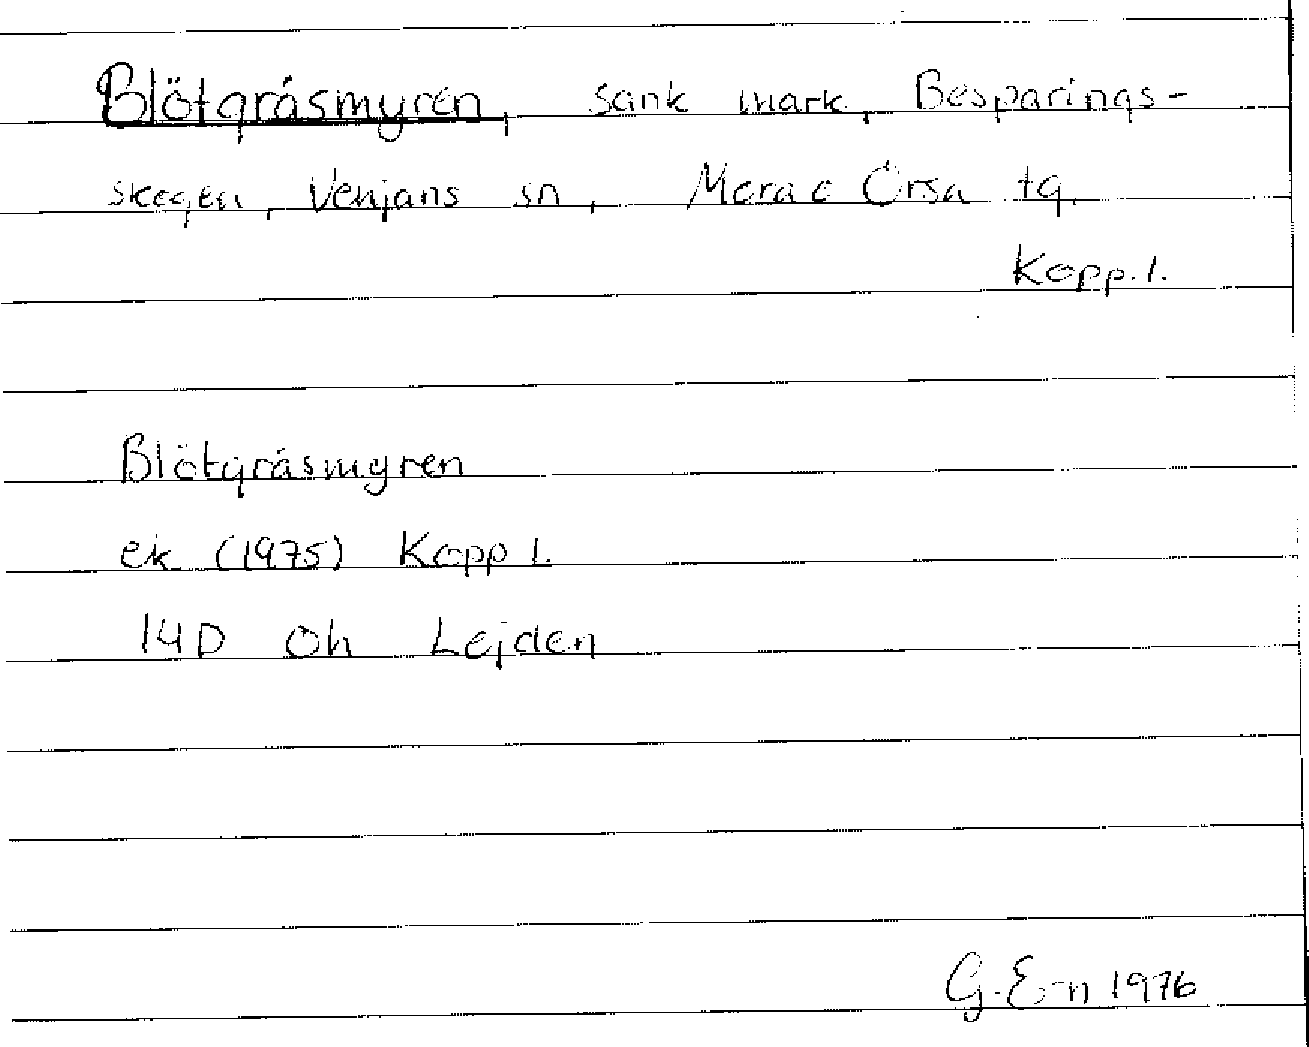 Blötgräsmyren, sank mark, Besparings-
skogen, Venjans sn, Mora o Orsa tg.
Kopp. l.
Blötgräsmyren
ek (1975) Kopp l.
14D 0h Lejden
G. E-n 1976